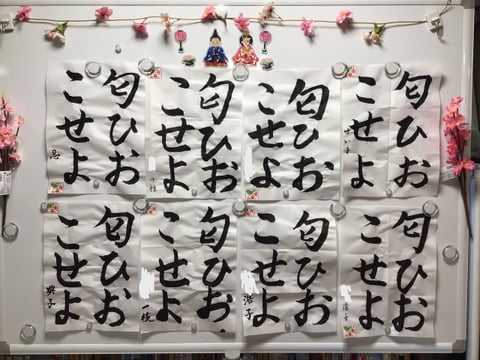 匂ひお
こせよ
匂ひお
こせよ
匂ひお
こせよ
匂ひお
こせよ
忍
匂ひお
こせよ
匂ひお
こせよ
匂ひお
こせよ
匂ひお
こせよ
典子